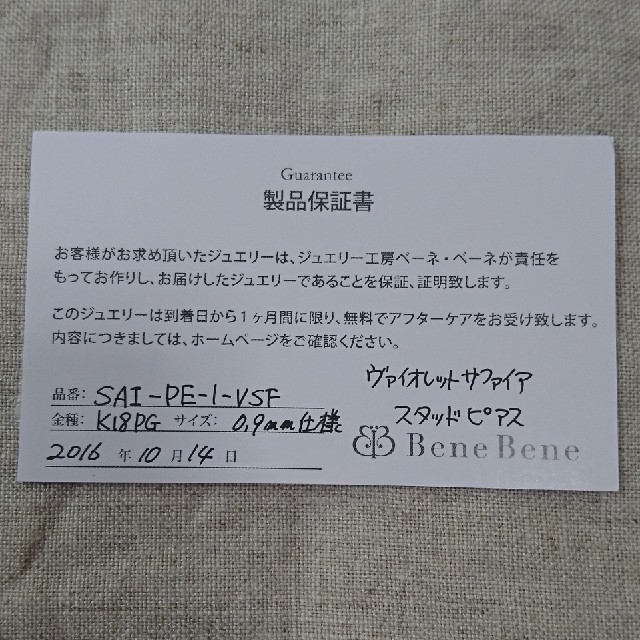 Guarantee
製品保証書
お客様がお求め頂いたジュエリーは、ジュエリー工房ベーネ・ベーネが責任を
もってお作りし、お届けしたジュエリーであることを保証、証明致します。
このジュエリーは到着日から1ヶ月間に限り、無料でアフターケアをお受け致します。
内容につきましては、ホームページをご確認ください。
品番: SAI-PE-1-VSF
金種: K18PG サイズ: 0.9mm仕様
2016 年 10 月 14 日
ヴァイオレットサファイア
スタッドピアス
BeneBene